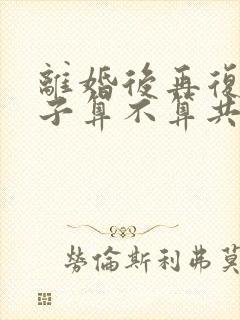 離婚後再復
子算不算共
勞倫斯利弗莫